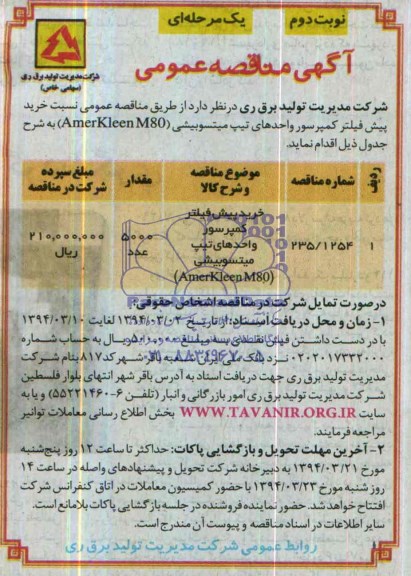 نوبت دوم
یک مرحله‌ای
شرکت مدیریت تولید برق ری
(سهامی خاص)
آگهی مناقصه عمومی
شرکت مدیریت تولید برق ری درنظر دارد از طریق مناقصه عمومی نسبت خرید
پیش فیلتر کمپرسور واحدهای تیپ میتسوبیشی (AmerKleen M80) به شرح
جدول ذیل اقدام نماید.
ردیف
شماره مناقصه
موضوع مناقصه
و شرح کالا
مقدار
مبلغ سپرده
شرکت در مناقصه
۱
۲۳۵/۱۲۵۴
خرید پیش فیلتر
کمپرسور
واحدهای تیپ
میتسوبیشی
(AmerKleen M80)
۵۰۰۰
عدد
۲۱۰,۰۰۰,۰۰۰
ریال
درصورت تمایل شرکت در مناقصه اشخاص حقوقی:
۱- زمان و محل دریافت اسناد: از تاریخ ۱۳۹۴/۰۳/۰۲ لغایت ۱۳۹۴/۰۳/۱۰
با در دست داشتن فیش نقدی به مبلغ ریال به حساب شماره
۰۲۰۲۰۱۷۳۳۲۰۰۰ نزد بانک ملی شهر کد ۸۱۷ بنام شرکت
مدیریت تولید برق ری جهت دریافت اسناد به آدرس باقر شهر انتهای بلوار فلسطین
شرکت مدیریت تولید برق ری امور بازرگانی و انبار (تلفن ۶-۵۵۲۲۱۴۶۰) و یا به
سایت WWW.TAVANIR.ORG.IR بخش اطلاع رسانی معاملات توانیر
مراجعه فرمایند.
۲- آخرین مهلت تحویل و بازگشایی پاکات: حداکثر تا ساعت ۱۲ روز پنج‌شنبه
مورخ ۱۳۹۴/۰۳/۲۱ به دبیرخانه شرکت تحویل و پیشنهادهای واصله در ساعت ۱۴
روز شنبه مورخ ۱۳۹۴/۰۳/۲۳ با حضور کمیسیون معاملات در اتاق کنفرانس شرکت
افتتاح خواهد شد. حضور نماینده فروشنده در جلسه بازگشایی پاکات بلامانع است.
سایر اطلاعات در اسناد مناقصه و پیوست آن مندرج است.
روابط عمومی شرکت مدیریت تولید برق ری